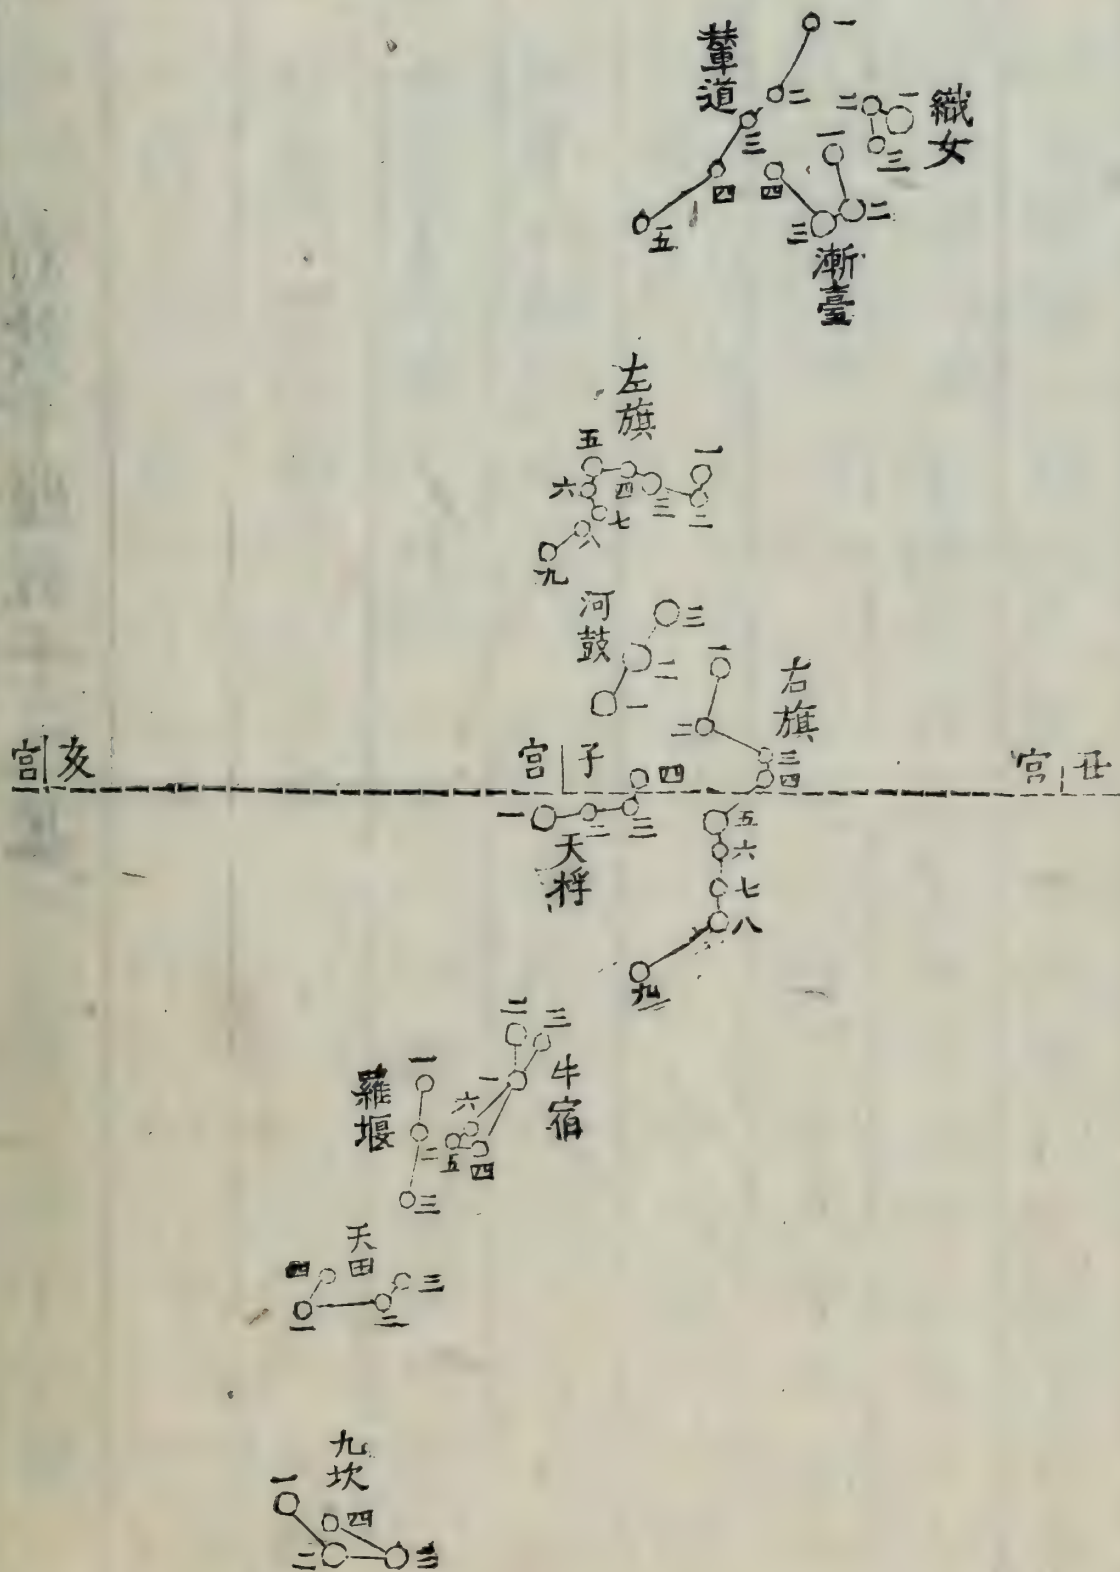 織女
一
二
三
輦道
一
二
三
四
五
漸臺
一
二
三
四
左旗
一
二
三
四
五
六
七
八
九
河鼓
一
二
三
右旗
一
二
三
四
五
六
七
八
九
丑宮
子宮
亥宮
天桴
一
二
三
四
牛宿
一
二
三
四
五
六
羅堰
一
二
三
天田
一
二
三
四
九坎
一
二
三
四